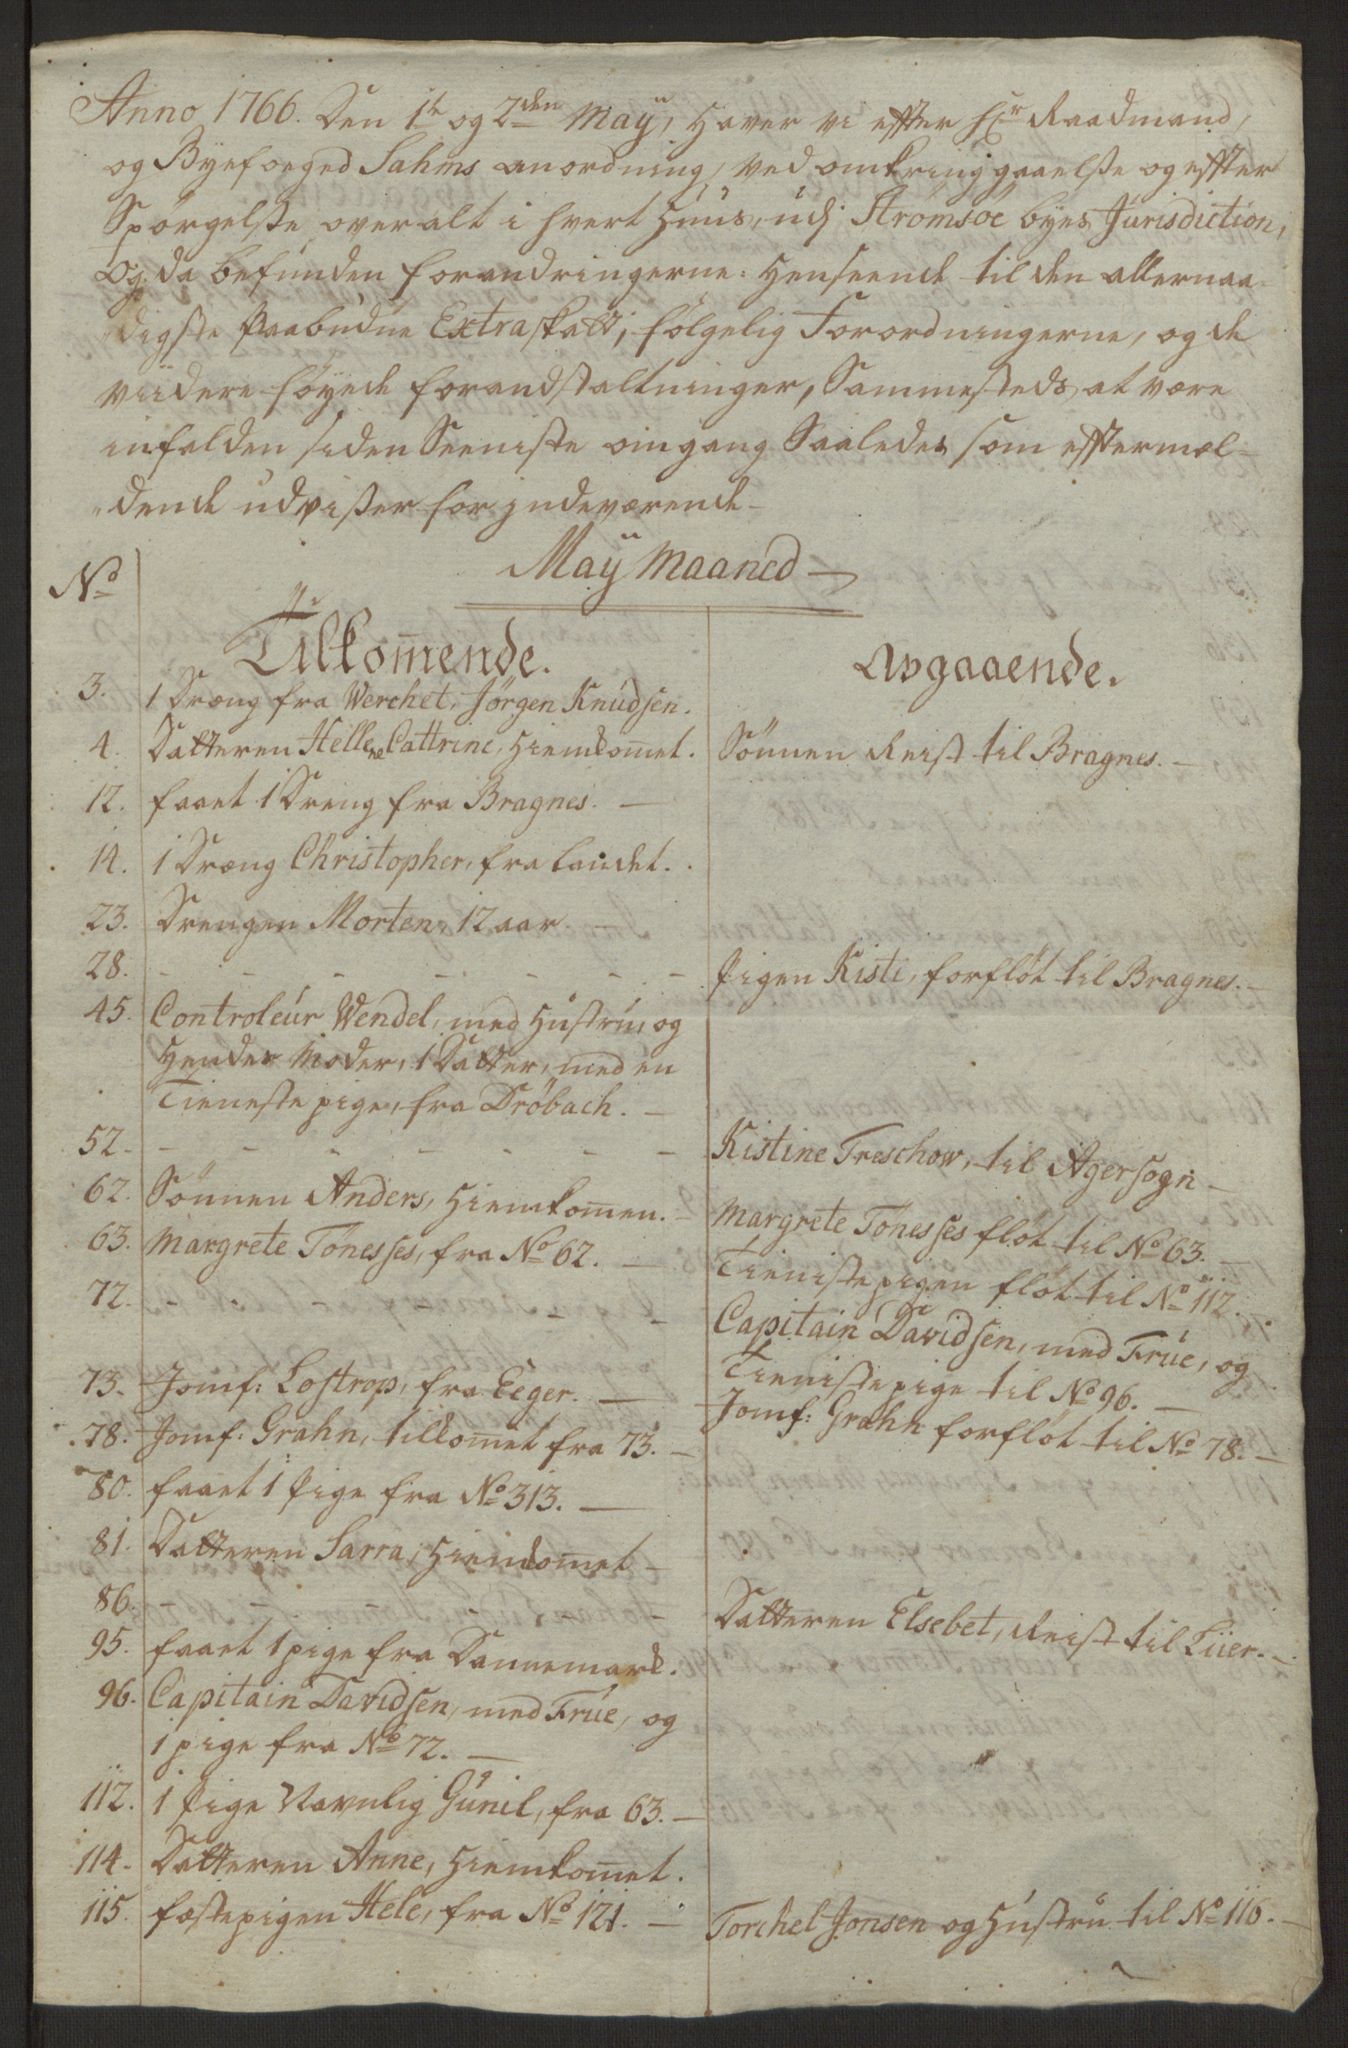 Anno 1766. Den 1te og 2den Maÿ, haver vi effter Hr Raadmand,
og Byefoeged Sahms anordning, ved omkringgaaelse og effter
Spörgelse overalt i hvert Huus, udj Strömsöe byes Jurisdiction,
Og da befunden forandringerne: Henseende til den allernaa-
digste paabudne Extraskatt, fölgelig Forordningerne, og de
viidere föyede forandstaltninger, Sammesteds at være
infalden siden Seeniste omgang Saaledes som efftermel-
dende udviser for jndeværende
Maÿ Maaned
No
Tilkom̅ende. Avgaaende.
3. 1 Dræng fra Werchet, Jörgen Knudsen.
4. Datteren Hellene Cattrine, hiemkom̅et. Sönnen Reist til Bragnes.
12. faaet 1 Dreng fra Bragnes.
14. 1 Dræng Christopher, fra Landet.
23. Drengen Morten, 12 aar
28. - - - - - - - Pigen Kisti, forflöt til Bragnes.
45. Controleur Wendel, med Hustru, og
Hendes Moder, 1 Datter, med en
Tieneste pige, fra Dröbach.
52. - - - - - - - Kistine Treschow, til Agersogn
62. Sönnen Anders, hiemkom̅en. Margrete Tönesses flöt til No 63.
63. Margrete Tönesses, fra No 62. Tienistepigen flöt til No 112.
72. - - - - - - - Capitain Davidsen, med Frue, og
Tienistepige til No 96.
73. Jomf: Lostrop, fra Eeger. Jomf: Grahn forflöt til No 78.
78. Jomf: Grahn, tilkom̅et fra 73.
80. faaet 1 Pige fra No 313.
81. Datteren Sarra, hiemkom̅et
86. - - - - - - - Datteren Elsebet, Reist til Liier.
95. faaet 1 pige fra Dannemark.
96. Capitain Davidsen, med Frue, og
1 pige fra No 72.
112. 1 Pige Navnlig Gunil, fra 63.
114. Datteren Anne, hiemkom̅et.
115. fæstepigen Hele, fra No 121. Torchel Jonsen og Hustru til No 116.